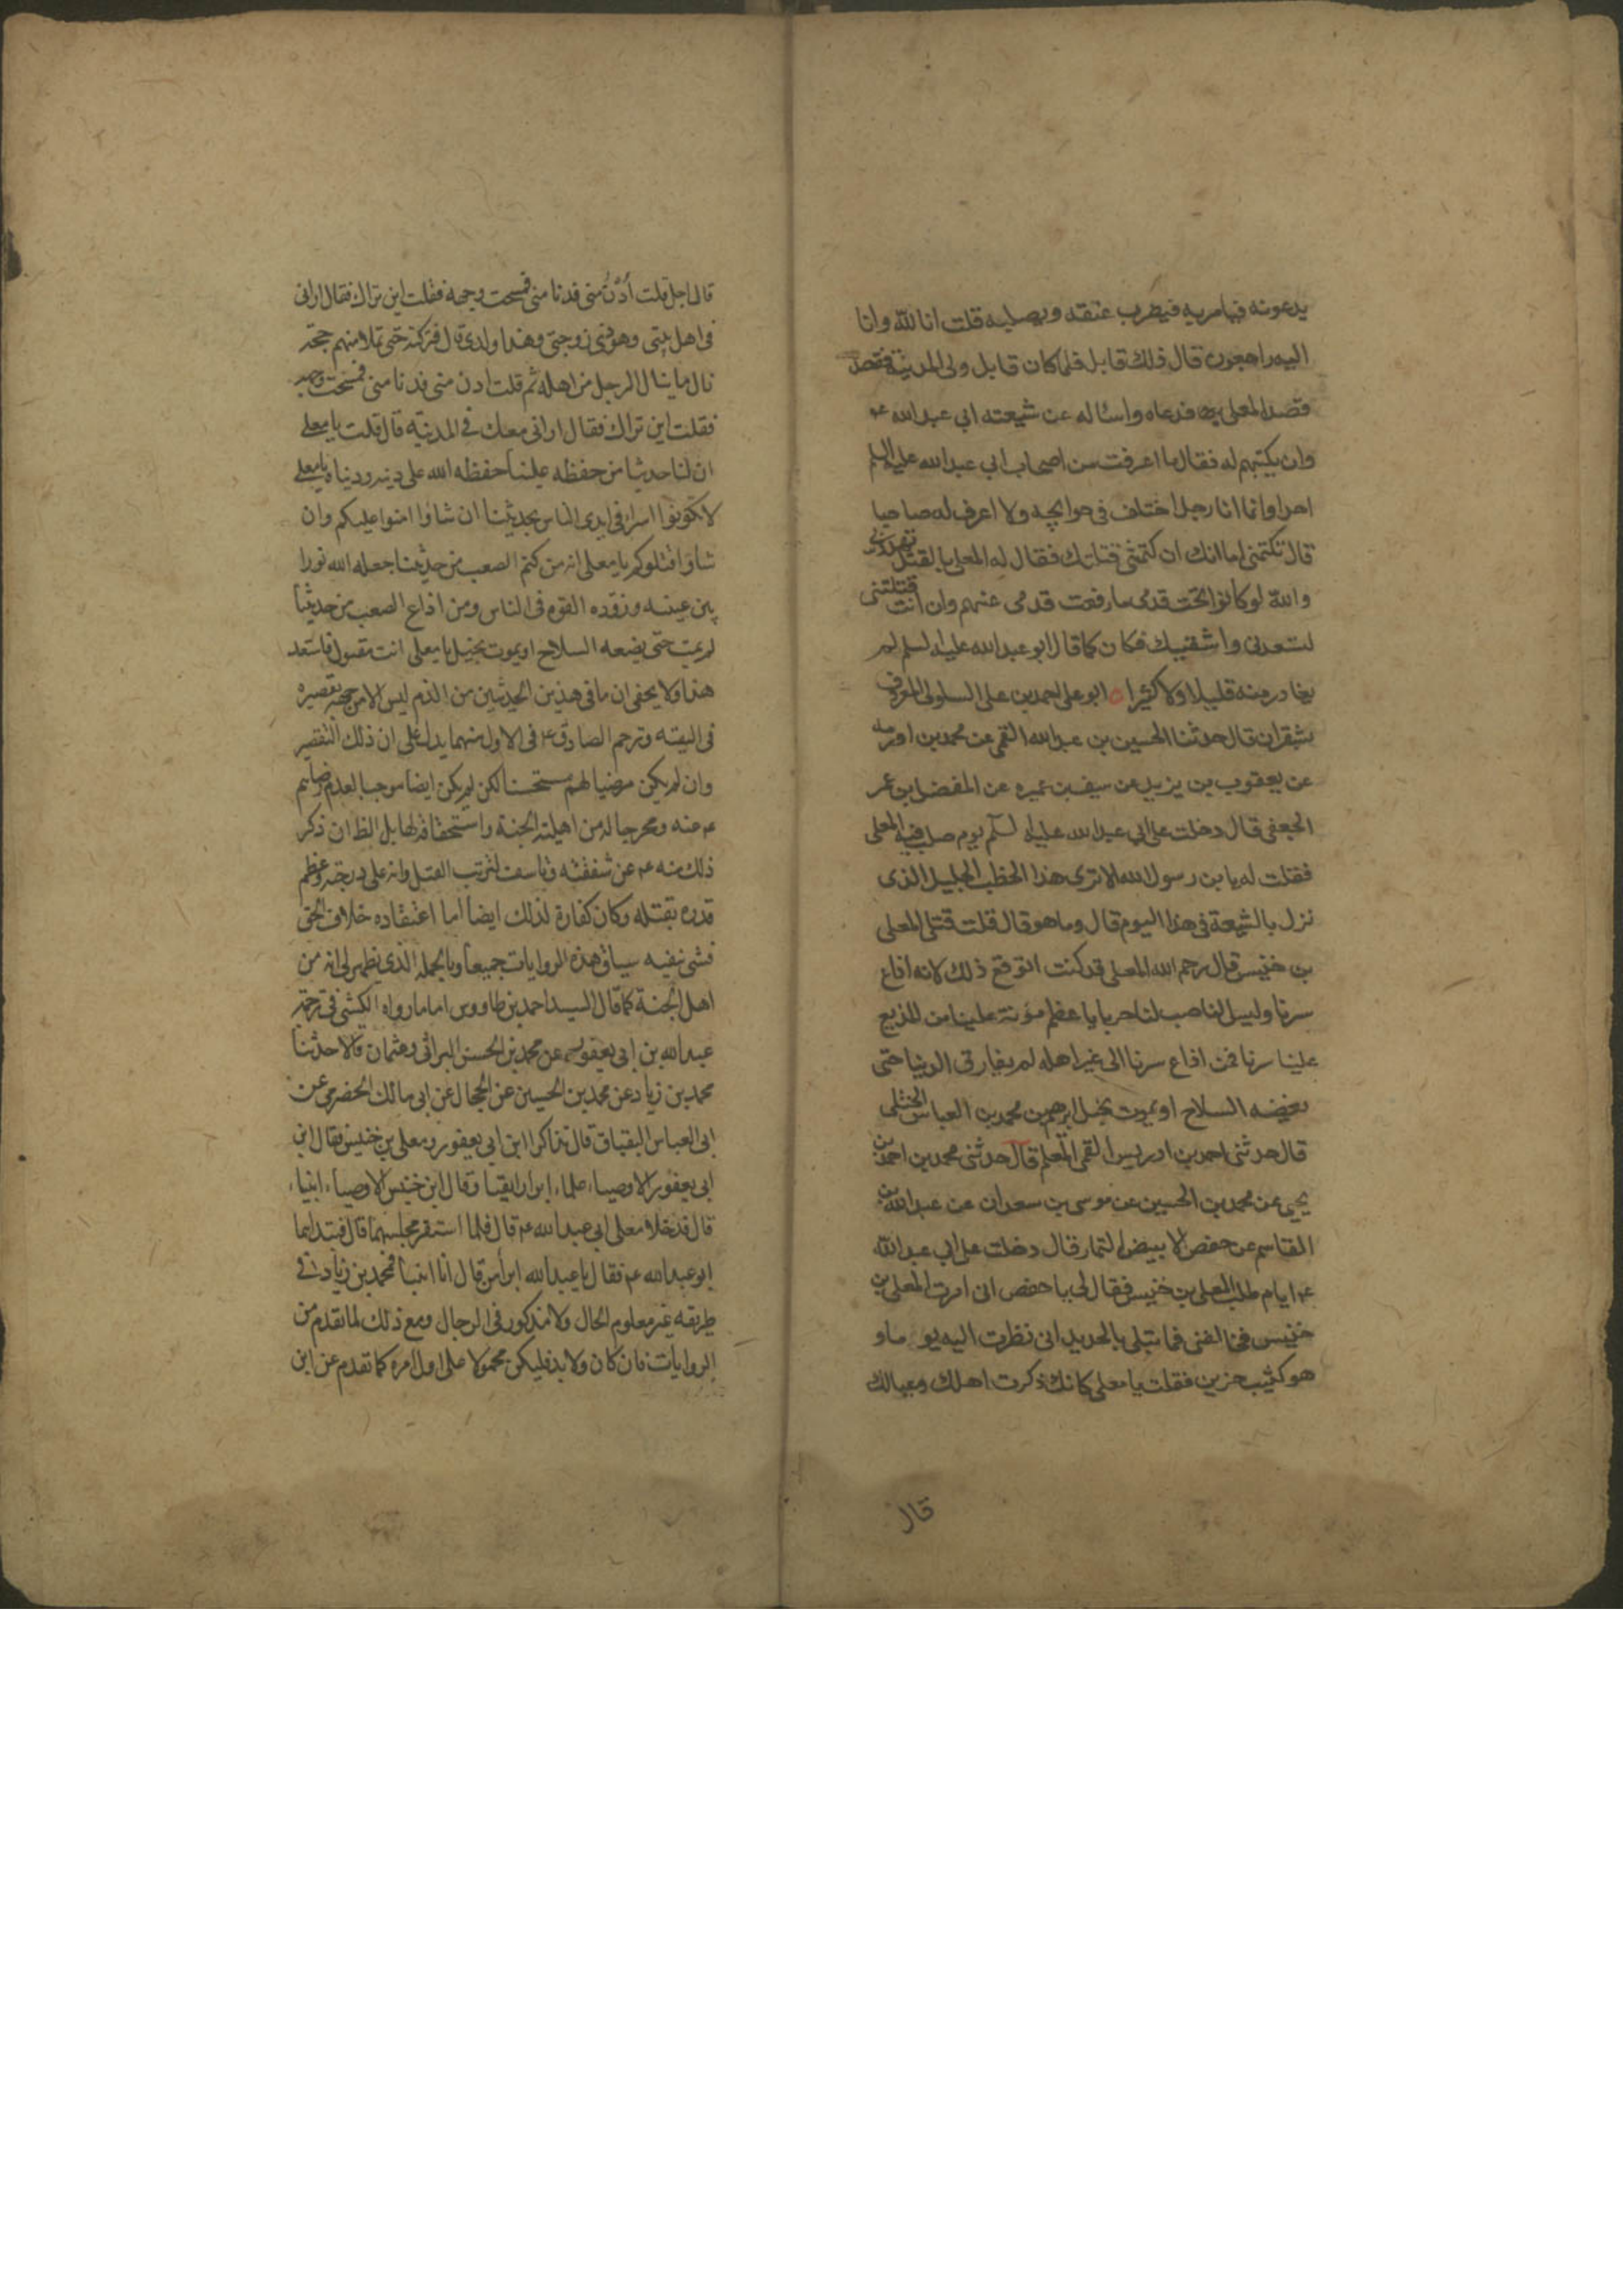 يدعونه فيامر به فيضرب عنقه ويصلبه قلت انا لله وانا
اليه راجعون قال ذلك قابل فلما كان قابل ولى المدينة فقصد
قصد المعلى فدعاه وساله عن شيعته ابي عبد الله ع
وان يكتبهم له فقال ما اعرفت من اصحاب ابي عبد الله عليه السلم
احدا وانما انا رجل اختلف في حوايجه ولا اعرف له صاحبا
قال تكتمنى اما انك ان كتمتنى قتلتك فقال له المعلى بالقتل تهددنى
والله لو كانوا تحت قدمى ما رفعت قدمى عنهم وان انت قتلتنى
لتسعدنى واشقيك فكان كما قال ابو عبد الله عليه السلم لم
يغادر منه قليلا ولا كثيرا ابو على احمد بن على السلولى المعروف
بشقران قال حدثنا الحسين بن عبد الله القمى عن محمد بن اورمه
عن يعقوب بن يزيد عن سيف بن عميره عن المفضل بن عمر
الجعفى قال دخلت على ابي عبد الله عليه السلم يوم صلب فيه المعلى
فقلت له يا بن رسول الله الا ترى هذا الخطب الجليل الذى
نزل بالشيعة فى هذا اليوم قال وما هو قال قلت قتل المعلى
بن خنيس قال رحم الله المعلى قد كنت اتوقع ذلك لانه اذاع
سرنا وليس الناصب لنا حربا باعظم مؤنة علينا من المذيع
علينا سرنا فمن اذاع سرنا الى غير اهله لم يفارق الدنيا حتى
يعضه السلاح او يموت بخبل ابرهيم بن محمد بن العباس الختلى
قال حدثنى احمد بن ادريس القمى المعلم قال حدثنى محمد بن احمد بن
يحيى عن محمد بن الحسين عن موسى بن سعدان عن عبد الله بن
القاسم عن حفص الابيض التمار قال دخلت على ابي عبد الله
ع ايام طلب المعلى بن خنيس فقال لى يا حفص انى امرت المعلى بن
خنيس فخالفنى فابتلى بالحديد انى نظرت اليه يوما و
هو كئيب حزين فقلت يا معلى كانك ذكرت اهلك وعيالك
قال
قال اجل قلت ادن منى فدنا منى فمسحت وجهه فقلت اين تراك فقال ارانى
فى اهل بيتى وهو ذى زوجتى وهذا ولدى قال فتركته حتى تملا منهم حتى
نال ما ينال الرجل من اهله ثم قلت ادن منى فدنا منى فمسحت وجهه
فقلت اين تراك فقال ارانى معك فى المدينة قال قلت يا معلى
ان لنا حديثا من حفظه علينا حفظه الله على دينه ودنياه يا معلى
لا تكونوا اسرا فى ايدى الناس بحديثنا ان شاؤا امنوا عليكم وان
شاؤا قتلوكم يا معلى انه من كتم الصعب من حديثنا جعله الله نورا
بين عينيه وزوده القوة فى الناس ومن اذاع الصعب من حديثنا
لم يمت حتى يعضه السلاح او يموت بخبل يا معلى انت مقتول فاستعد
هذا ولا يخفى ان ما فى هذين الحديثين من الذم ليس الا من جهة تقصيره
فى التقيه وترحم الصادق ع فى الاول منهما يدل على ان ذلك التقصير
وان لم يكن مرضيا لهم مستحسنا لكن لم يكن ايضا موجبا لعدم رضاهم
ع عنه ومخرجا له من اهلية الجنة واستحقاقه لها بل الظ ان ذكر
ذلك منه ع عن شفقته وتاسف لترتب القتل وانه على درجته وعظم
قدره بقتله وكان كفارة لذلك ايضا اما اعتقاده خلاف الحق
فشى نفيه سياق هذه الروايات جميعا وبالجملة الذى يظهر لى انه من
اهل الجنة كما قال السيد احمد بن طاووس اما ما رواه الكشى فى ترجمة
عبد الله بن ابى يعفور عن محمد بن الحسن البراثى وعثمان قالا حدثنا
محمد بن زياد عن محمد بن الحسين عن الحجال عن ابى مالك الحضرمى عن
ابى العباس البقباق قال تذاكرا ابن ابى يعفور ومعلى بن خنيس فقال ابن
ابى يعفور الاوصياء علماء ابرار اتقيا وقال ابن خنيس الاوصياء انبياء
قال فدخلا معلى ابى عبد الله ع قال فلما استقر مجلسهما قال فبداهما
ابو عبد الله ع فقال يا عبد الله ابرأ ممن قال انا انبيأ فمحمد بن زياد فى
طريقه غير معلوم الحال ولا مذكور فى الرجال ومع ذلك لما تقدم من
الروايات فان كان ولا بد فليكن محمولا على اول امره كما تقدم عن ابن